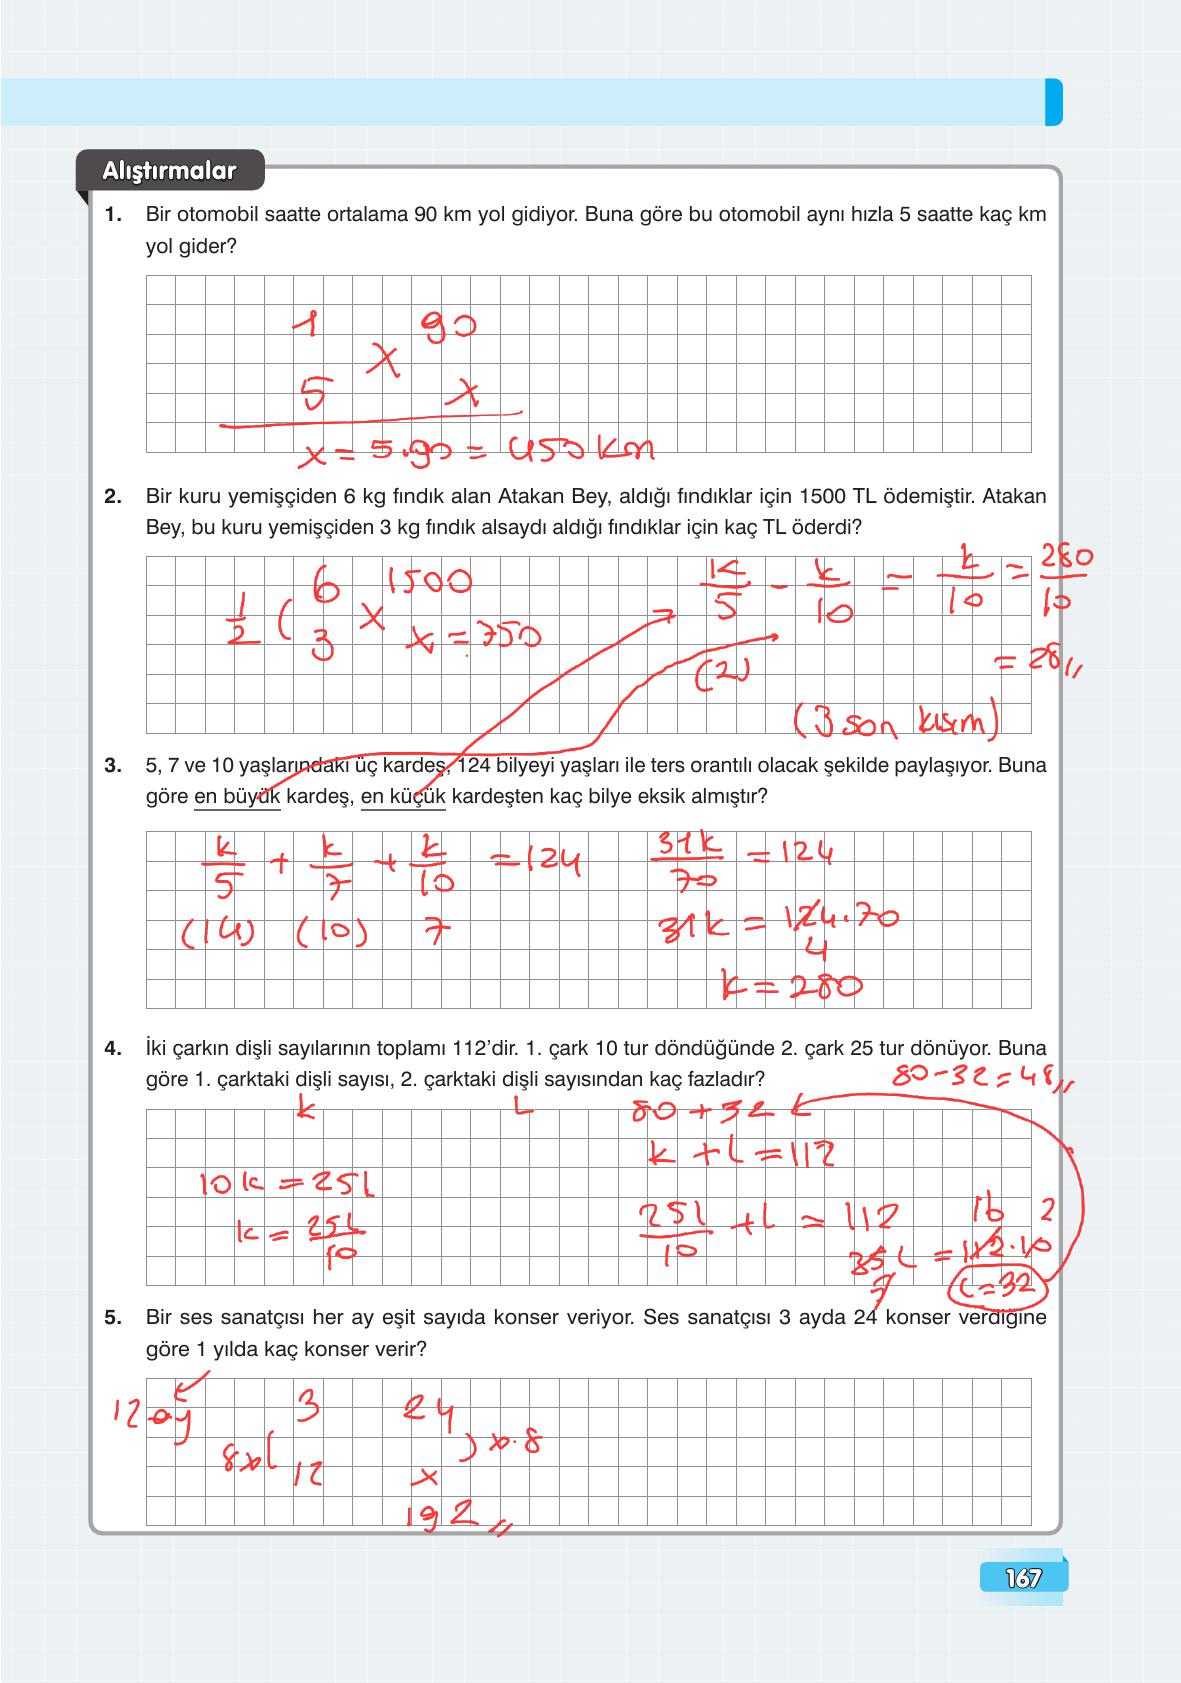 Alıştırmalar
1. Bir otomobil saatte ortalama 90 km yol gidiyor. Buna göre bu otomobil aynı hızla 5 saatte kaç km
yol gider?
1 90
x
5 x
x = 5.90 = 450 km
2. Bir kuru yemişçiden 6 kg fındık alan Atakan Bey, aldığı fındıklar için 1500 TL ödemiştir. Atakan
Bey, bu kuru yemişçiden 3 kg fındık alsaydı aldığı fındıklar için kaç TL öderdi?
1/2 ( 6 x 1500
3 x = 750
k/5 - k/10 = k/10 = 280/10
(2)
= 28//
(3 son kısım)
3. 5, 7 ve 10 yaşlarındaki üç kardeş, 124 bilyeyi yaşları ile ters orantılı olacak şekilde paylaşıyor. Buna
göre en büyük kardeş, en küçük kardeşten kaç bilye eksik almıştır?
k/5 + k/7 + k/10 = 124
(14) (10) 7
31k/70 = 124
31k = 124.70
4
k = 280
4. İki çarkın dişli sayılarının toplamı 112’dir. 1. çark 10 tur döndüğünde 2. çark 25 tur dönüyor. Buna
göre 1. çarktaki dişli sayısı, 2. çarktaki dişli sayısından kaç fazladır?
80-32=48//
k L
80 + 32
k + l = 112
10k = 25l
k = 25l/10
25l/10 + l = 112
16 2
35 l = 112.10
7
l = 32
5. Bir ses sanatçısı her ay eşit sayıda konser veriyor. Ses sanatçısı 3 ayda 24 konser verdiğine
göre 1 yılda kaç konser verir?
12 ay
3 24
8x( ) x.8
12 x
192//
167